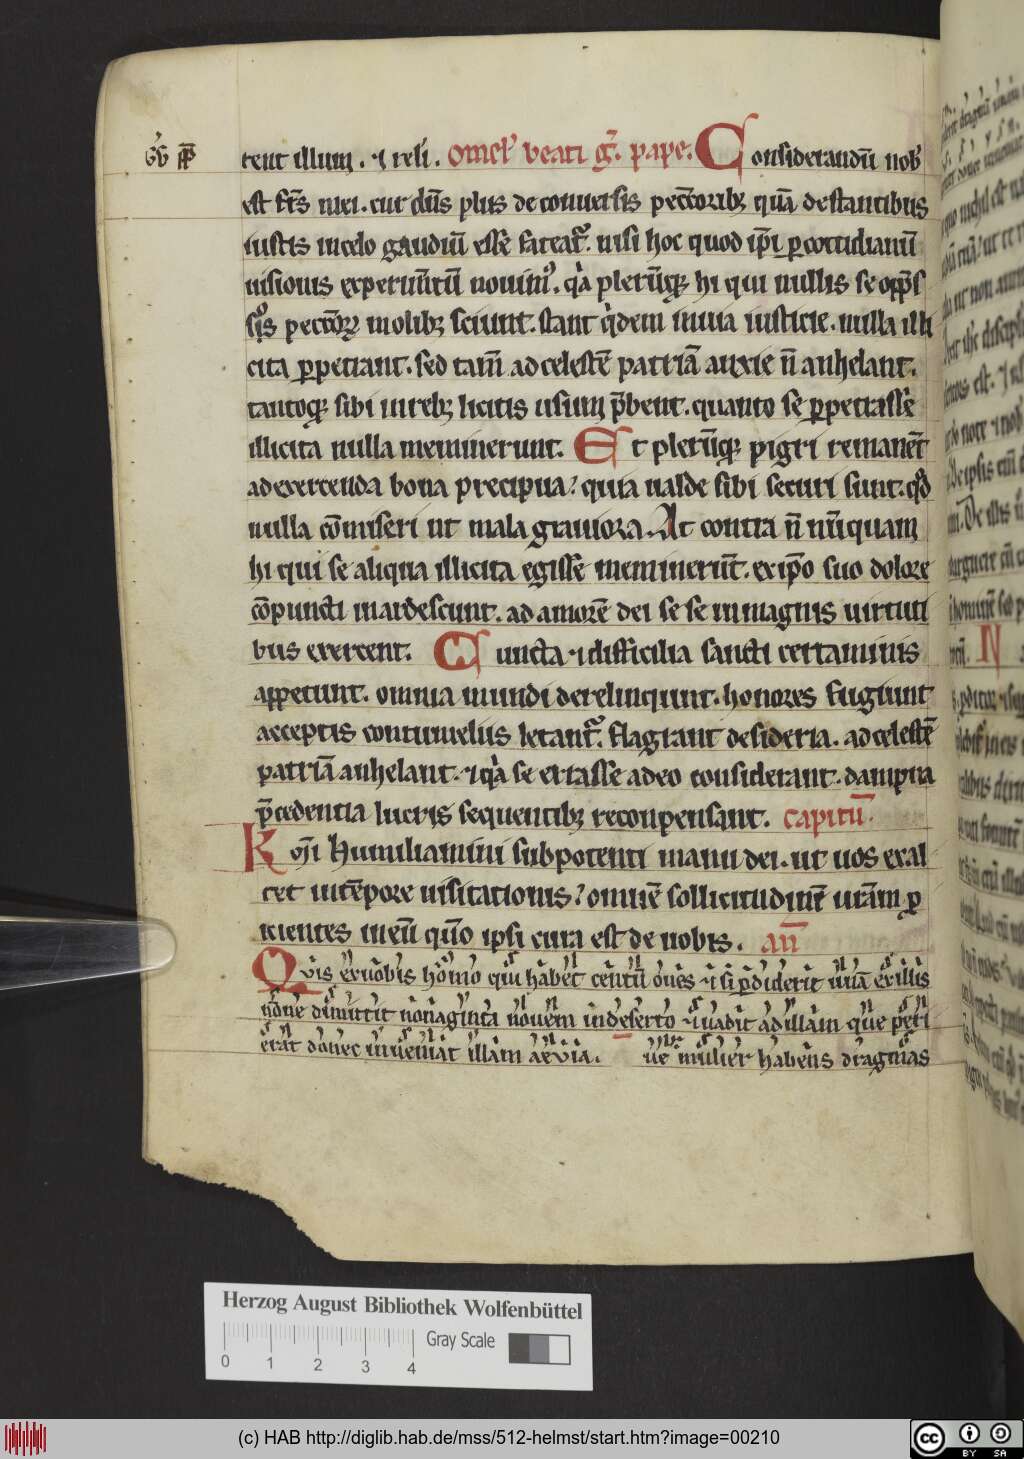 tent illum . ⁊ reli᷑ . Omel᷑ beati g̃. pape. Considerandū nob᷒
est fr̄s mei. cur dn̄s plus de conuersis pecc̄oribꝫ quā de stantibus
iustis in celo gaudiū esse fateat᷑. nisi hoc quod ip̄i ꝑ cottidianū
uisionis experim̄tū nouim᷒. q̇a plerūqꝫ hi qui nullis se opp̄s
sos pecc̄oꝝ molibꝫ sciunt. stant q̇dem in uia iusticie. nulla illi
cita ꝑpetrant. sed tam̄ ad celestē patriā anxie n̄ anhelant.
tantoqꝫ sibi in rebꝫ licitis usum p̄bent. quanto se ꝑpetrasse
illicita nulla meminerunt. Et plerūqꝫ pigri remanēt
ad exercenda bona precipua? quia ualde sibi securi sunt. qd̄
nulla cōmiseri nt mala grauiora. At contra n̄ nūquam
hi qui se aliqua illicita egisse meminerūt. ex ip̄o suo dolore
cōpuncti inardescunt. ad amorē dei se se in magnis uirtuti
bus exercent. Cuncta ⁊ difficilia sancti certaminis
appetunt. omnia mundi derelinquunt. honores fugiunt
acceptis contumeliis letant᷑. flagrant desideria. ad celestē
patriā anhelant. ⁊ q̇a se errasse a deo considerant. dampna
p̄cedentia lucris sequentibꝫ reconpensant. capitū.
Kmi humiliamini sub potenti manu dei. ut uos exal
tet in tēpore uisitationis? omnē sollicitudinē urām ꝓ
icientes in eū quō ipsi cura est de uobis. an̄
Quis ex uobis homo qui habet centū oues ⁊ si ꝑdiderit unā ex illis
nōne dimittit nonaginta nouem in deserto ⁊ uadit ad illam que peri
erat donec inueniat illam aeuia. ue mulier habens dragmas
Herzog August Bibliothek Wolfenbüttel
Gray Scale
0 1 2 3 4
(c) HAB http://diglib.hab.de/mss/512-helmst/start.htm?image=00210
cc BY SA